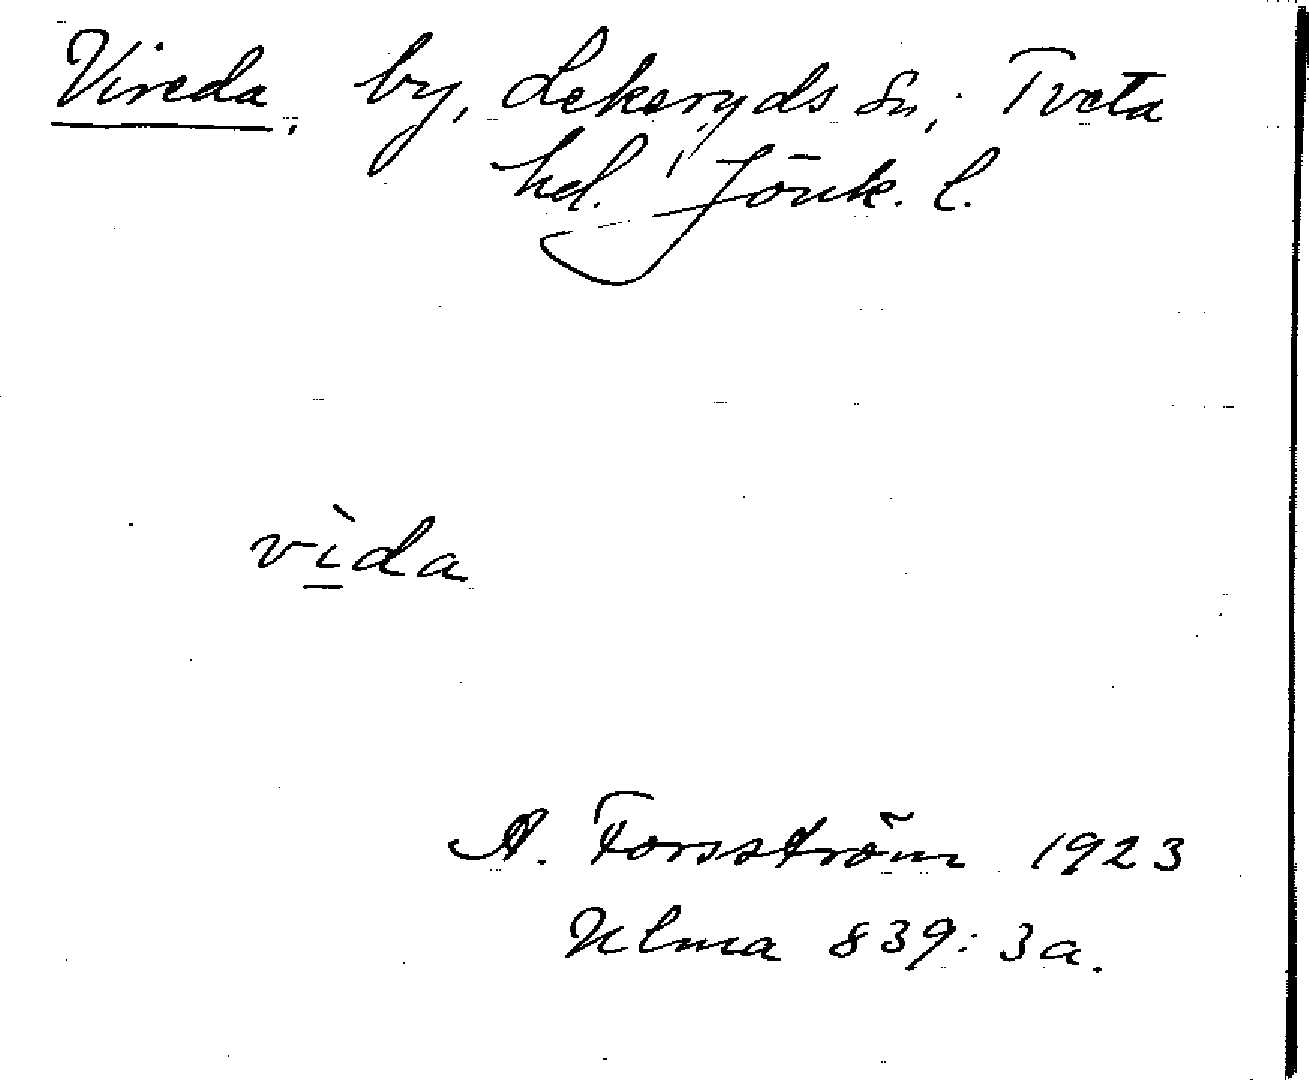 Vireda, by, Lekeryds sn, Tveta
hd. Jönk. l.
vìda
A. Forsström 1923
Ulma 839: 3a.